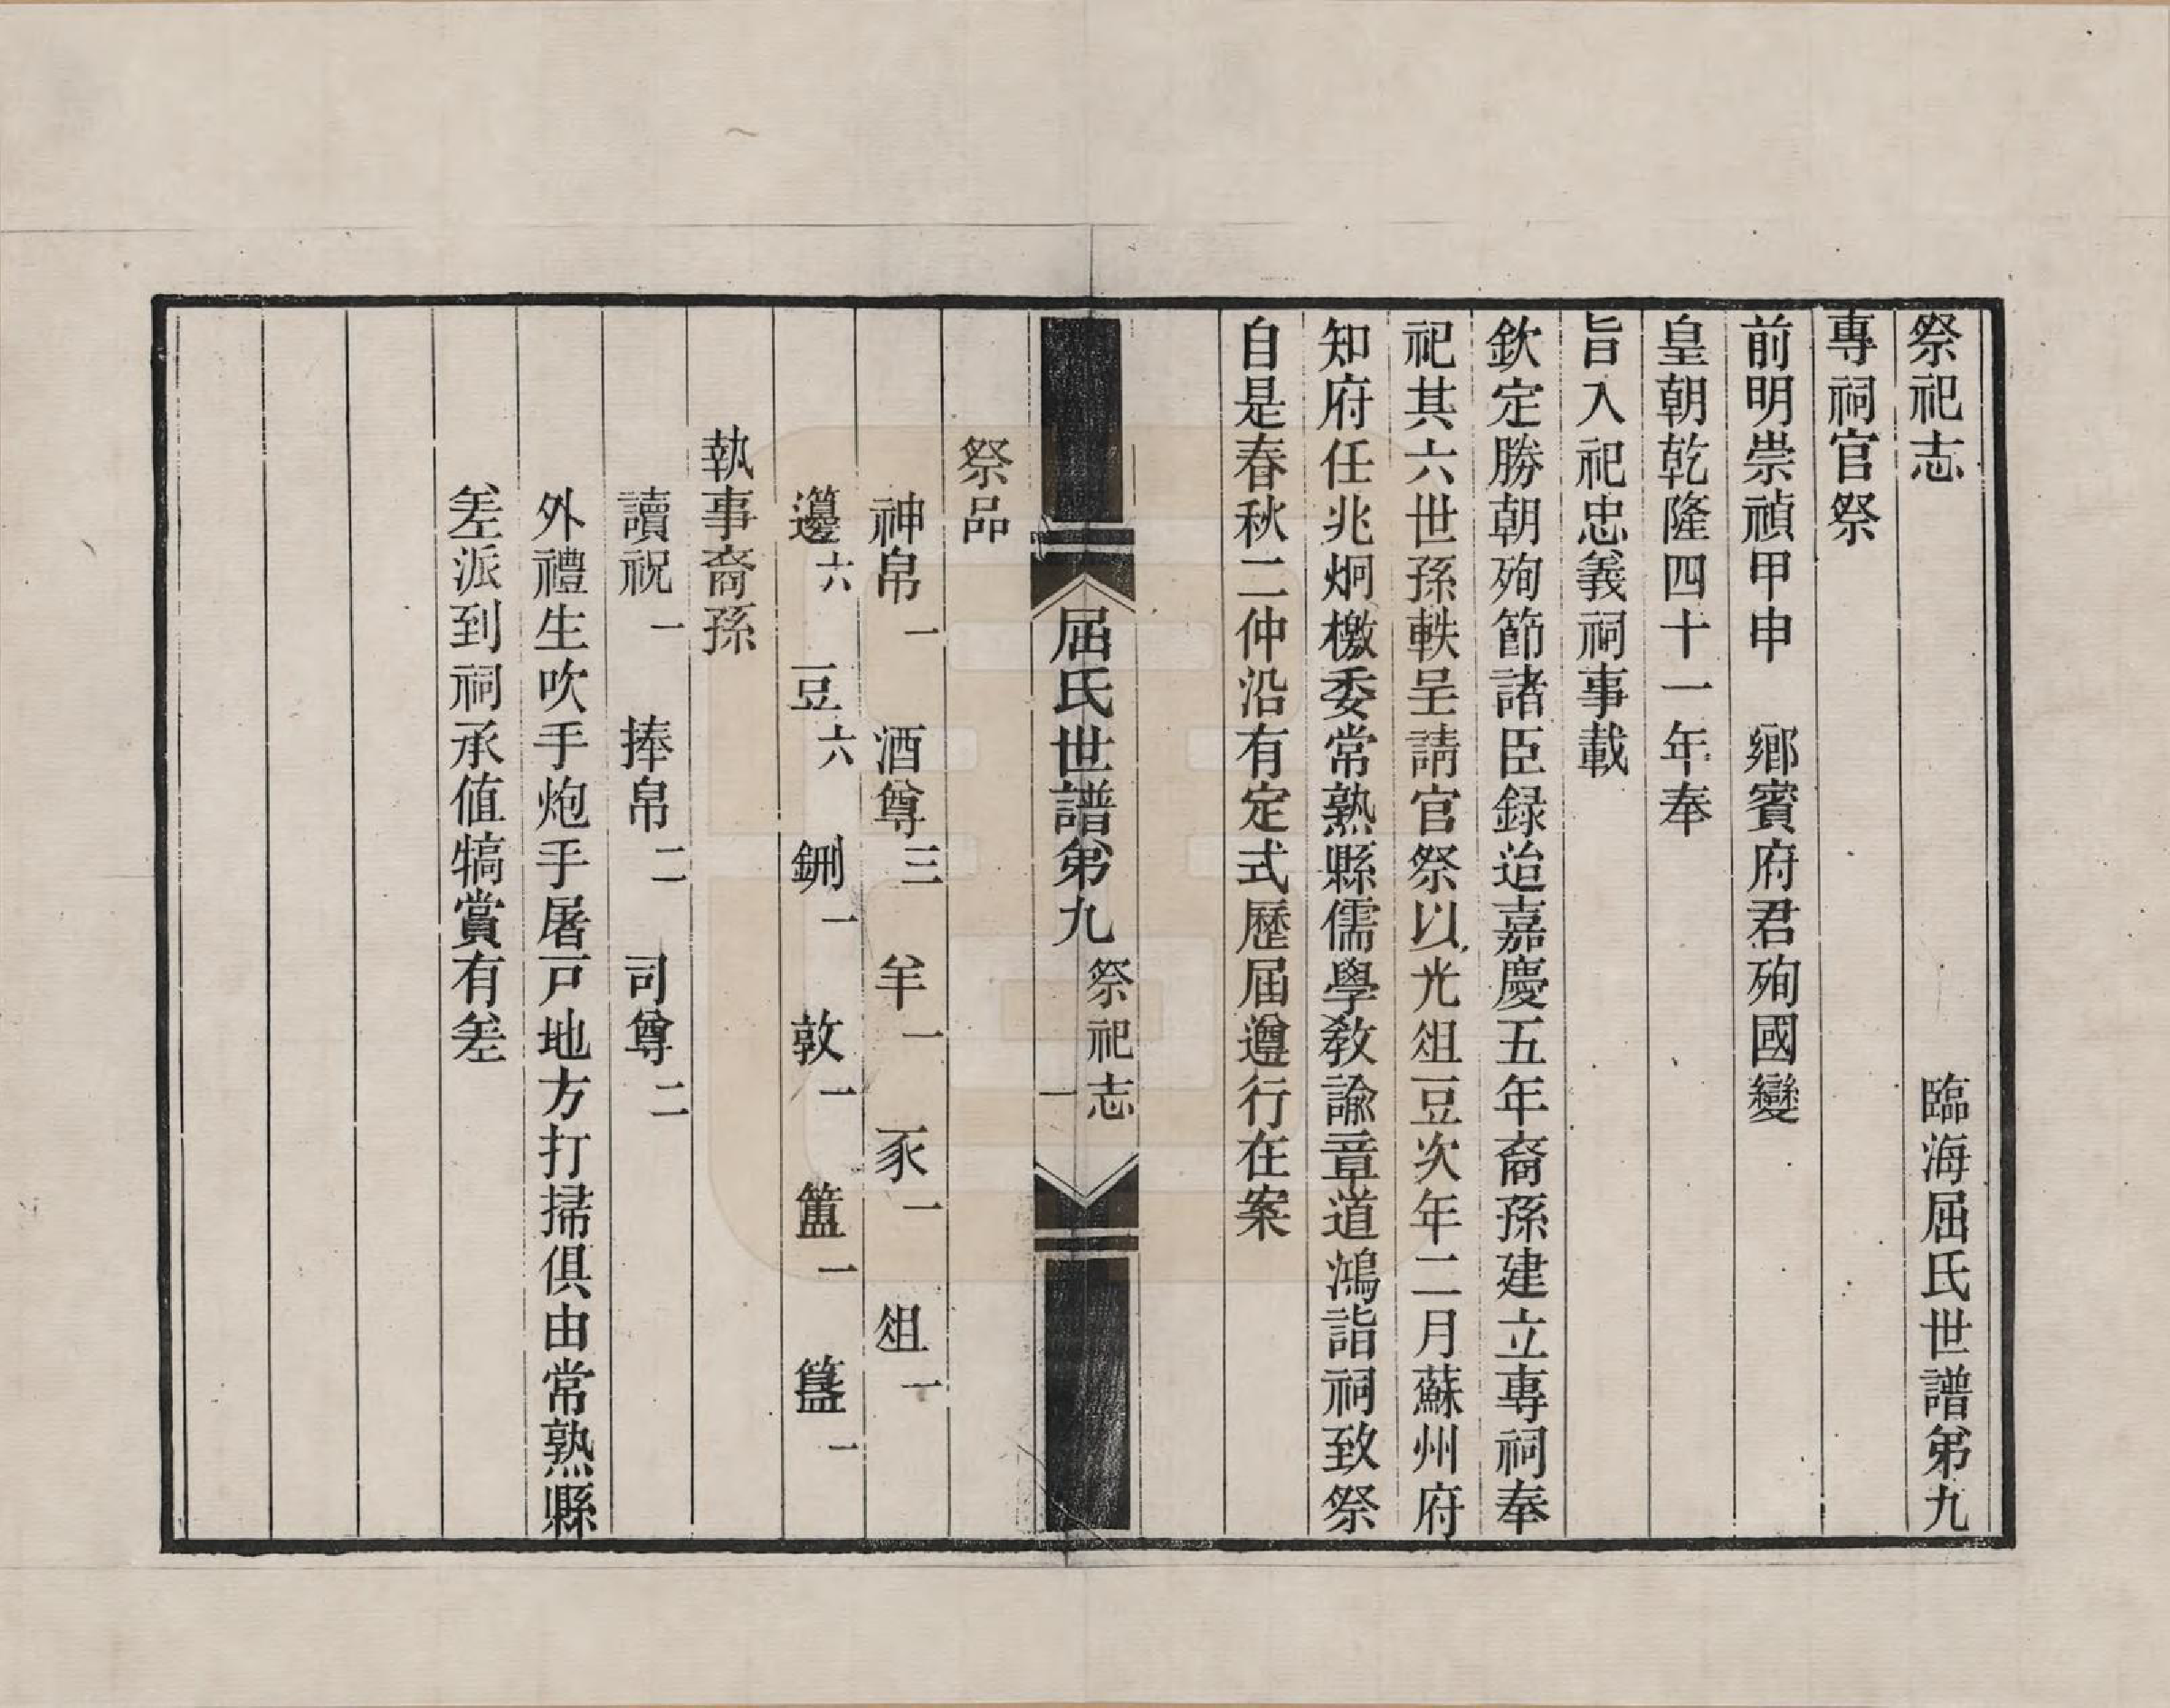 祭祀志　臨海屈氏世譜第九
專祠官祭
前明崇禎甲申　鄉賓府君殉國變
皇朝乾隆四十一年奉
旨入祀忠義祠事載
欽定勝朝殉節諸臣録迨嘉慶五年裔孫建立專祠奉
祀其六世孫軼呈請官祭以光俎豆次年二月蘇州府
知府任兆炯檄委常熟縣儒學教諭章道鴻詣祠致祭
自是春秋二仲沿有定式歷屆遵行在案
屈氏世譜第九　祭祀志　一
祭品
神帛一　酒尊三　羊一　豕一　俎一
籩六　豆六　鉶一　敦一　簠一　簋一
執事裔孫
讀祝一　捧帛二　司尊二
外禮生吹手炮手屠戸地方打掃俱由常熟縣
差派到祠承值犒賞有差